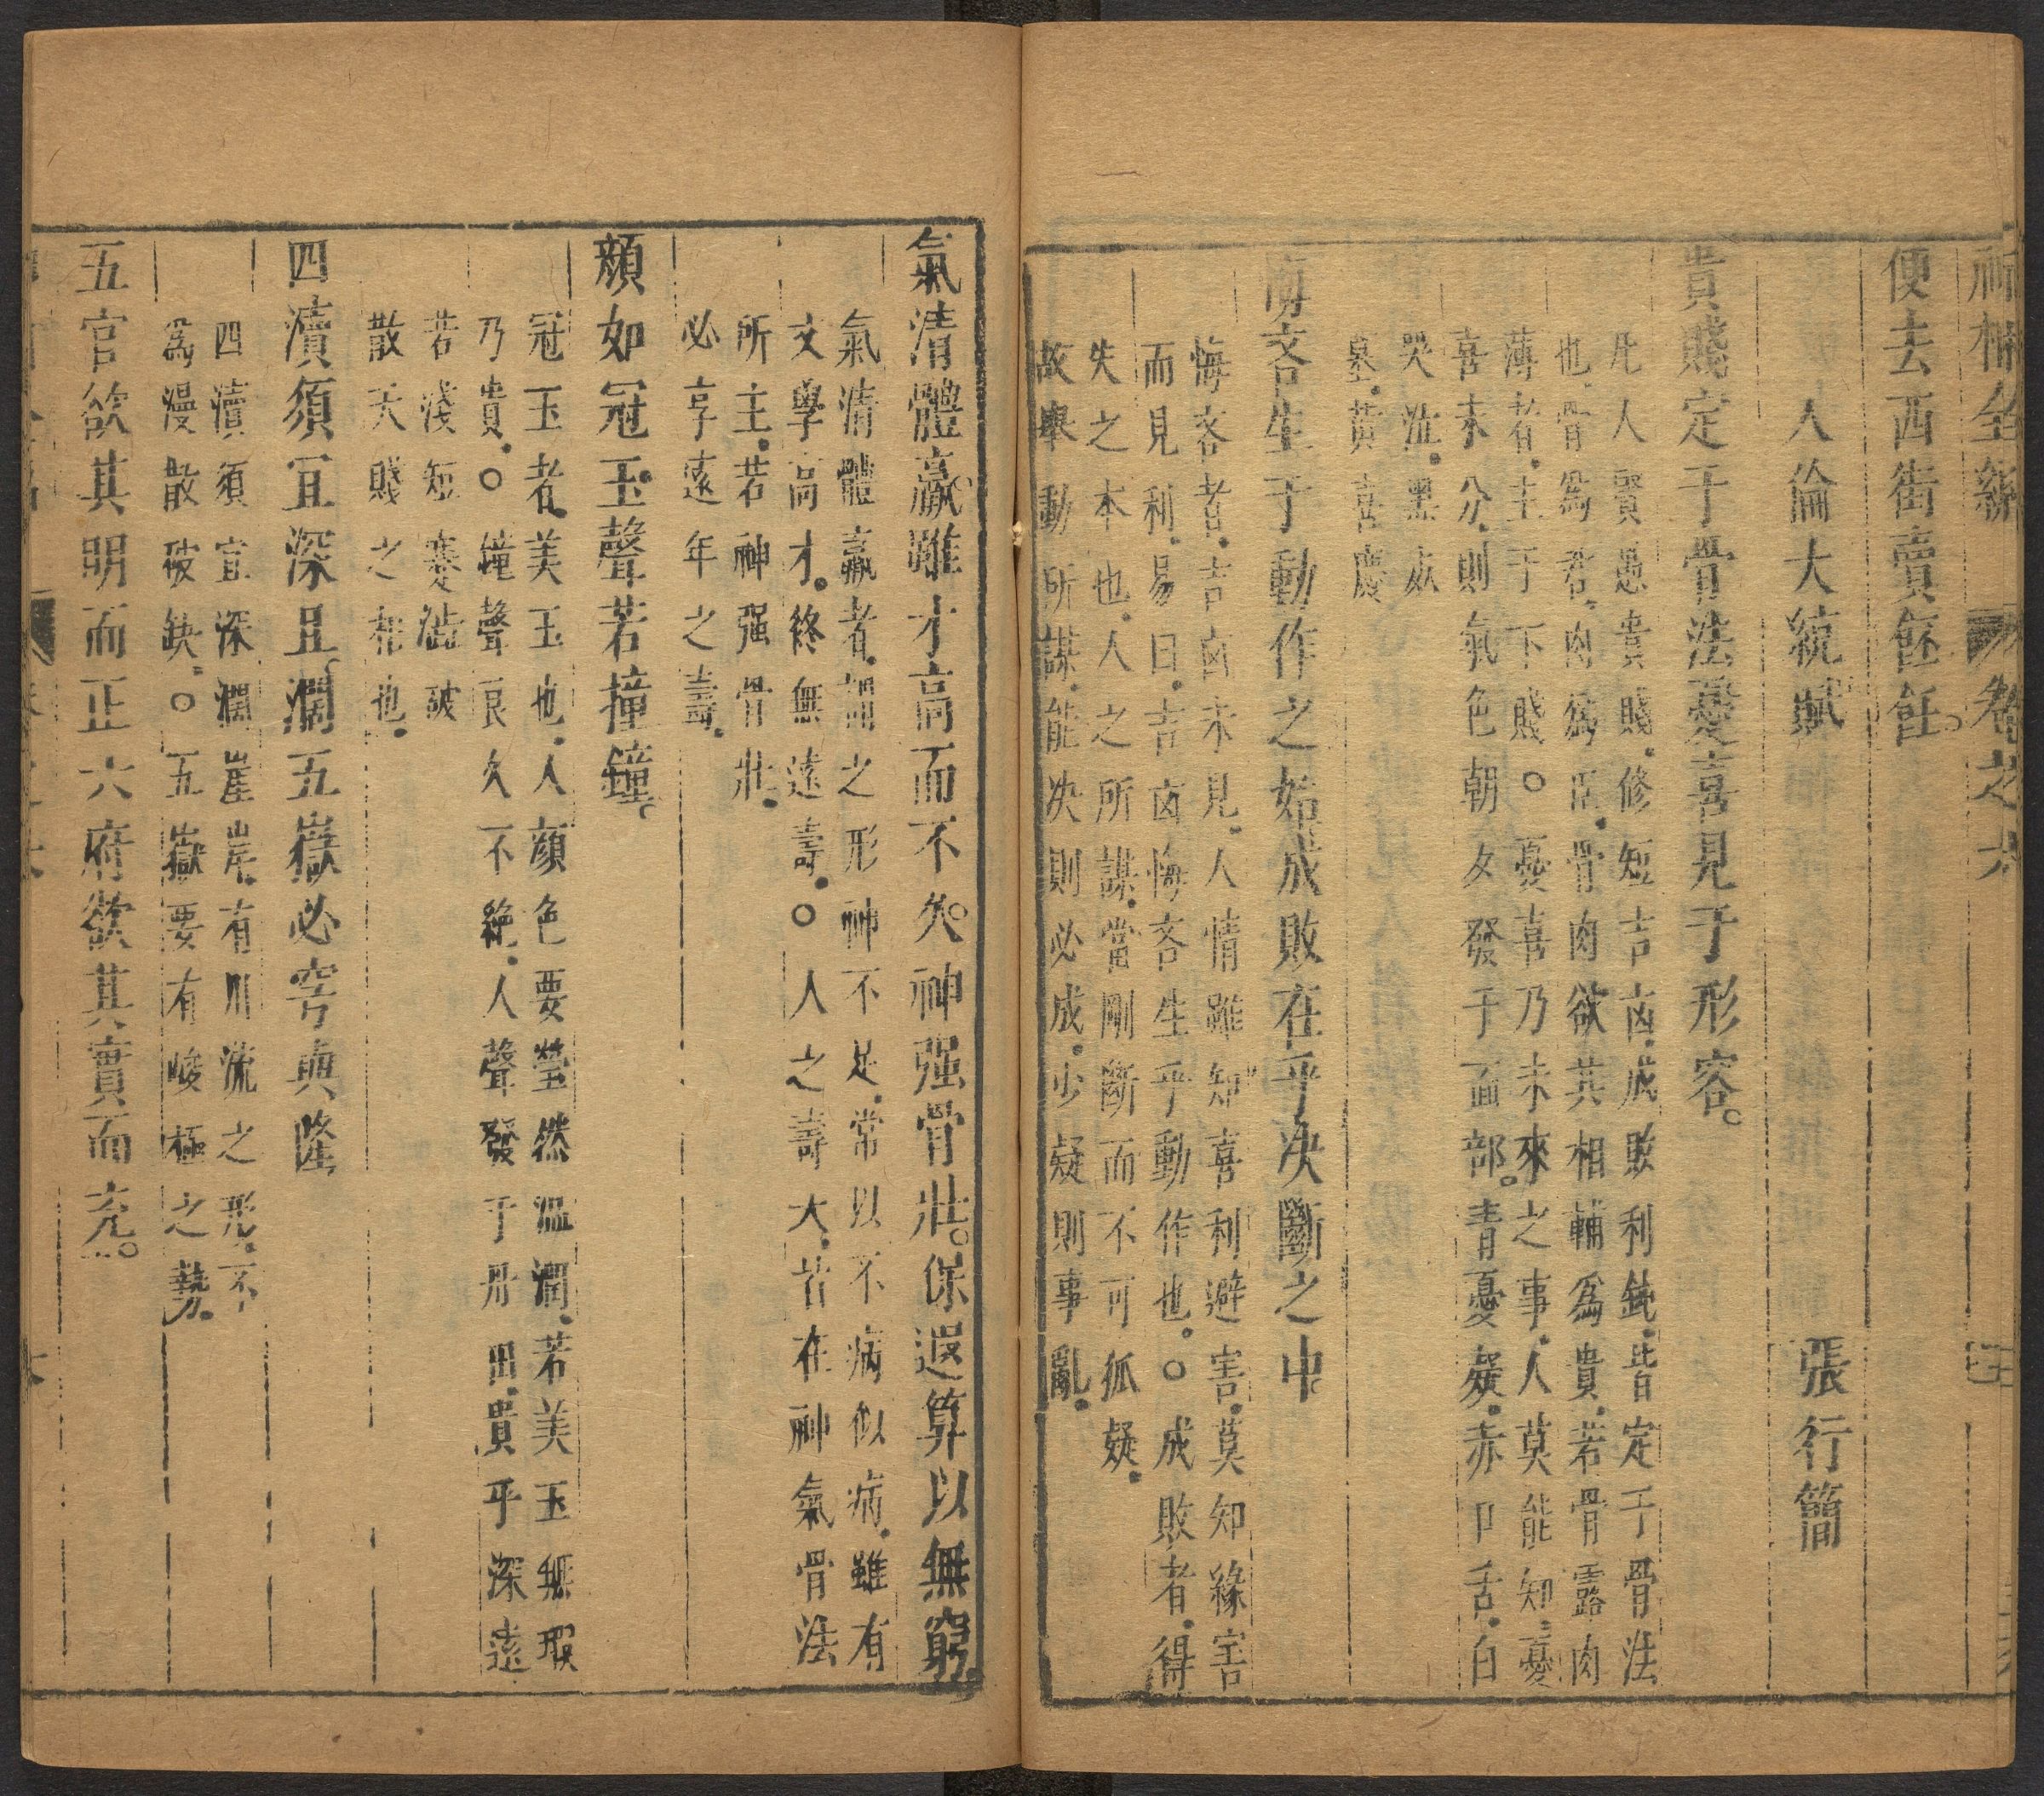 神相全編 卷之六
便去西街賣餛飥
人倫大統賦 張行簡
貴賤定于骨法憂喜見于形容
凡人賢愚貴賤修短吉凶成敗利鈍皆定于骨法
也骨爲君肉爲臣骨肉欲其相輔爲貴若骨露肉
薄者主于下賤○憂喜乃未來之事人莫能知憂
喜未分則氣色朝夕發于面部青憂疑赤口舌白
哭泣黑疾
墓黃喜慶
悔吝生于動作之始成敗在乎決斷之中
悔吝者吉凶未見人情雖知喜利避害莫知緣害
而見利易曰吉凶悔吝生乎動作也○成敗者得
失之本也人之所謀當剛斷而不可狐疑
故舉動所謀能決則必成少疑則事亂
氣清體羸雖才高而不久神强骨壯保遐算以無窮
氣清體羸者謂之形神不足常以不病似病雖有
文學高才終無遠壽○人之壽夭皆在神氣骨法
所主若神强骨壯
必享遠年之壽
顏如冠玉聲若撞鐘
冠玉者美玉也人顏色要瑩然溫潤若美玉無瑕
乃貴○鐘聲良久不絶人聲發于丹田貴乎深遠
若淺短蹇澁破
散夭賤之相也
四瀆須宜深且濶五嶽必穹與隆
四瀆須宜深濶崖岸有川流之形不
爲漫散破缺○五嶽要有峻極之勢
五官欲其明而正六府欲其實而充